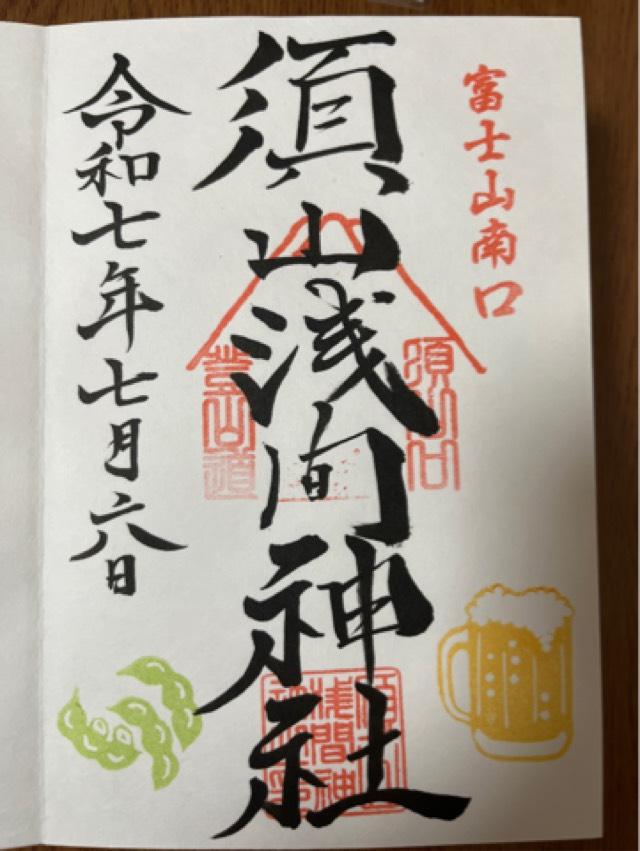 富士山南口
須山浅間神社
須山口
登山道
令和七年七月六日